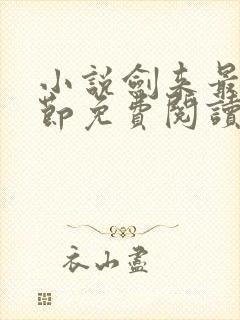 小說劍来最
節免費閱讀
衣山盡